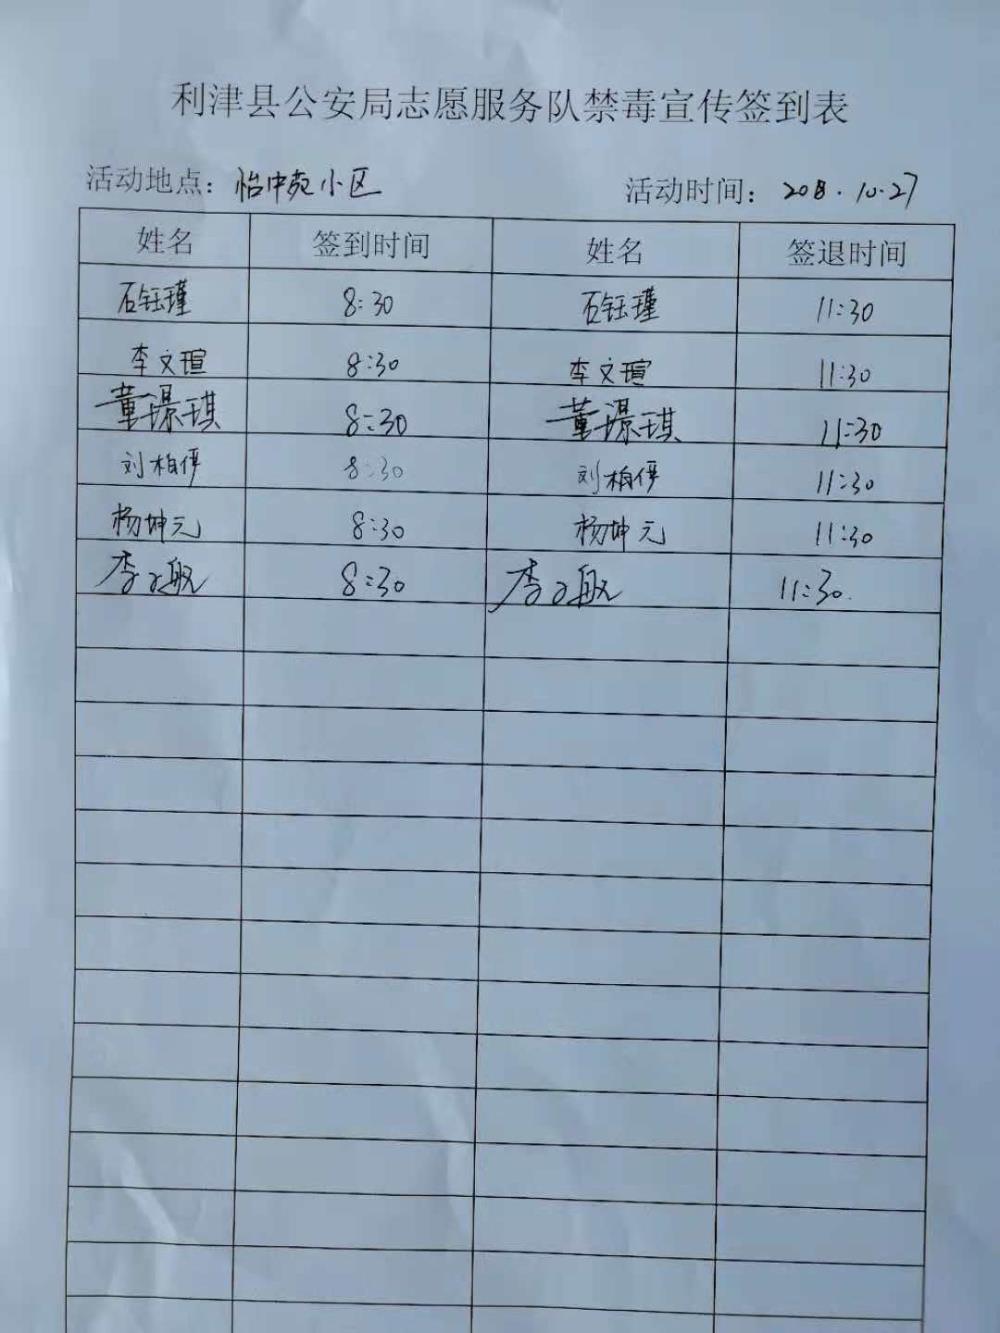 利津县公安局志愿服务队禁毒宣传签到表
活动地点：怡中苑小区 活动时间：2018.10.27
姓名 签到时间 姓名 签退时间
石钰瑾 8:30 石钰瑾 11:30
李文瑄 8:30 李文瑄 11:30
董璟琪 8:30 董璟琪 11:30
刘柏 8:30 刘柏 11:30
杨坤元 8:30 杨坤元 11:30
李 8:30 李 11:30.